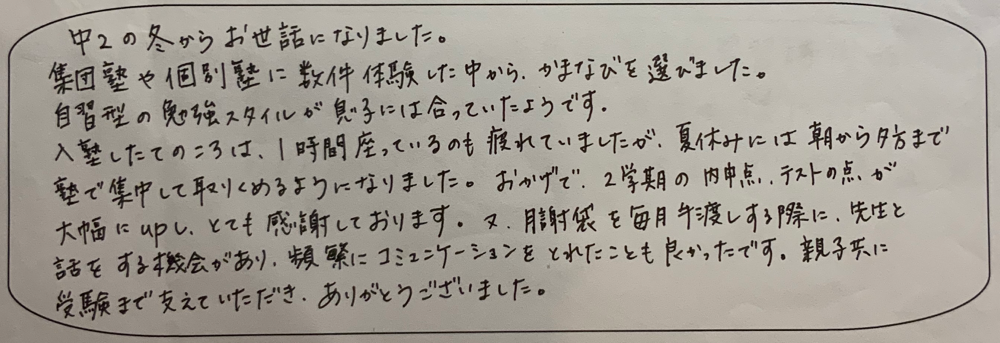 中2の冬からお世話になりました。
集団塾や個別塾に数件体験した中から、かまなびを選びました。
自習型の勉強スタイルが息子には合っていたようです。
入塾したてのころは、1時間座っているのも疲れていましたが、夏休みには朝から夕方まで
塾で集中して取りくめるようになりました。おかげで、2学期の内申点、テストの点が
大幅にupし、とても感謝しております。又、月謝袋を毎月手渡しする際に、先生と
話をする機会があり、頻繁にコミュニケーションをとれたことも良かったです。親子共に
受験まで支えていただき、ありがとうございました。